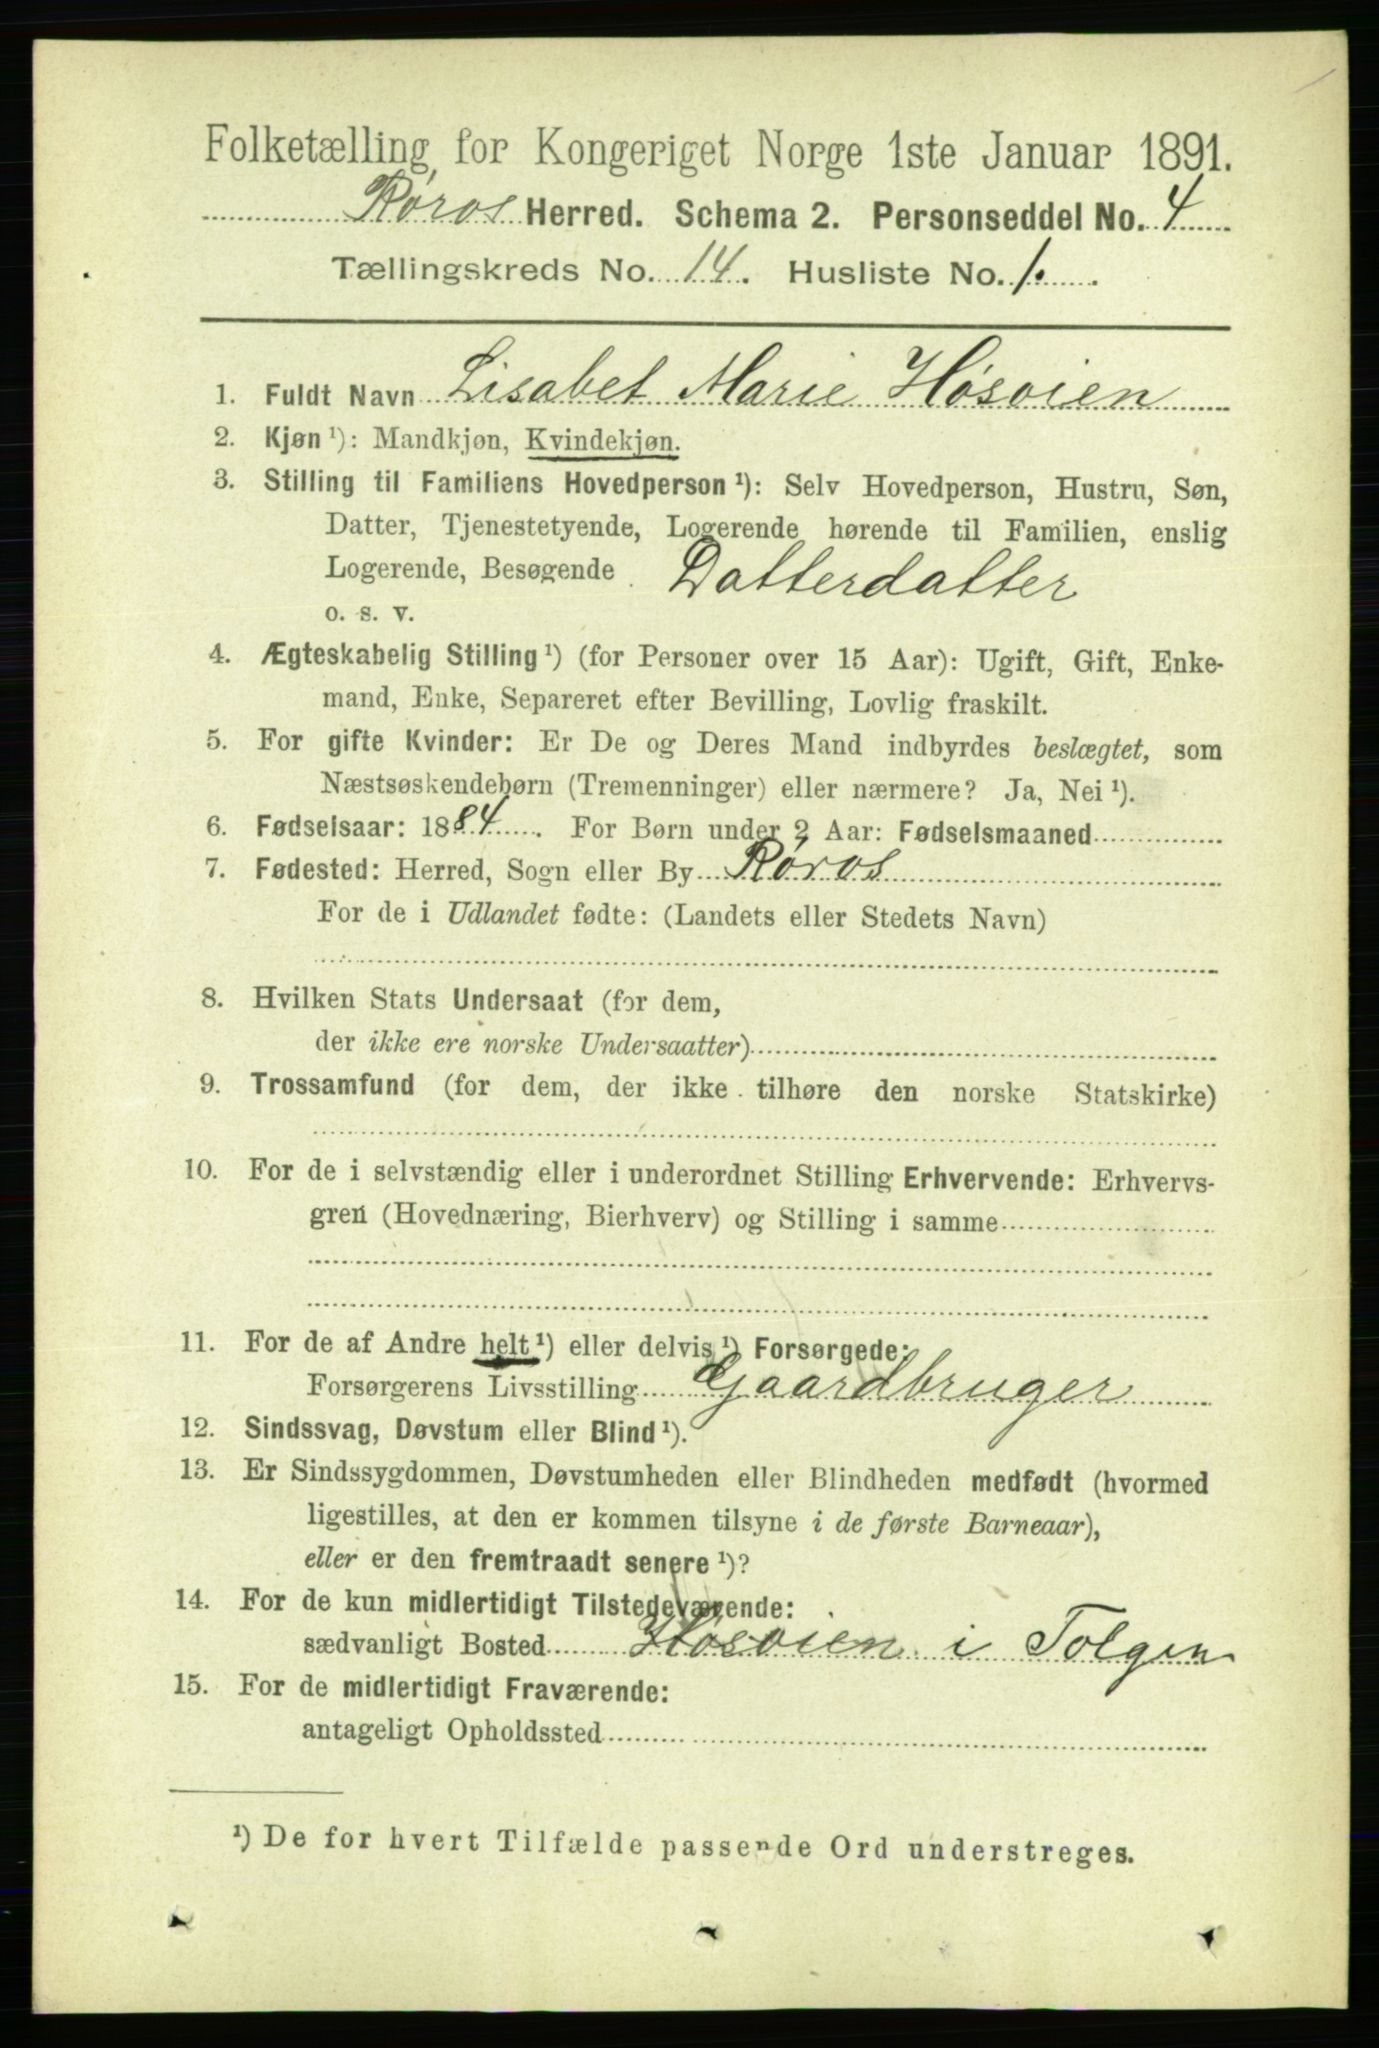 Folketælling for Kongeriget Norge 1ste Januar 1891.
Røros Herred. Schema 2. Personseddel No. 4
Tællingskreds No. 14. Husliste No. 1.
1. Fuldt Navn Lisabet Marie Høsøien
2. Kjøn ¹): Mandkjøn, Kvindekjøn.
3. Stilling til Familiens Hovedperson ¹): Selv Hovedperson, Hustru, Søn,
Datter, Tjenestetyende, Logerende hørende til Familien, enslig
Logerende, Besøgende Datterdatter
o. s. v.
4. Ægteskabelig Stilling ¹) (for Personer over 15 Aar): Ugift, Gift, Enke-
mand, Enke, Separeret efter Bevilling, Lovlig fraskilt.
5. For gifte Kvinder: Er De og Deres Mand indbyrdes beslægtet, som
Næstsøskendebørn (Tremenninger) eller nærmere? Ja, Nei ¹).
6. Fødselsaar: 1884. For Børn under 2 Aar: Fødselsmaaned
7. Fødested: Herred, Sogn eller By Røros
For de i Udlandet fødte: (Landets eller Stedets Navn)
8. Hvilken Stats Undersaat (for dem,
der ikke ere norske Undersaatter)
9. Trossamfund (for dem, der ikke tilhøre den norske Statskirke)
10. For de i selvstændig eller i underordnet Stilling Erhvervende: Erhvervs-
gren (Hovednæring, Bierhverv) og Stilling i samme
11. For de af Andre helt ¹) eller delvis ¹) Forsørgede:
Forsørgerens Livsstilling Gaardbruger
12. Sindssvag, Døvstum eller Blind ¹).
13. Er Sindssygdommen, Døvstumheden eller Blindheden medfødt (hvormed
ligestilles, at den er kommen tilsyne i de første Barneaar),
eller er den fremtraadt senere ¹)?
14. For de kun midlertidigt Tilstedeværende:
sædvanligt Bosted Høsøien i Tolgen
15. For de midlertidigt Fraværende:
antageligt Opholdssted
¹) De for hvert Tilfælde passende Ord understreges.